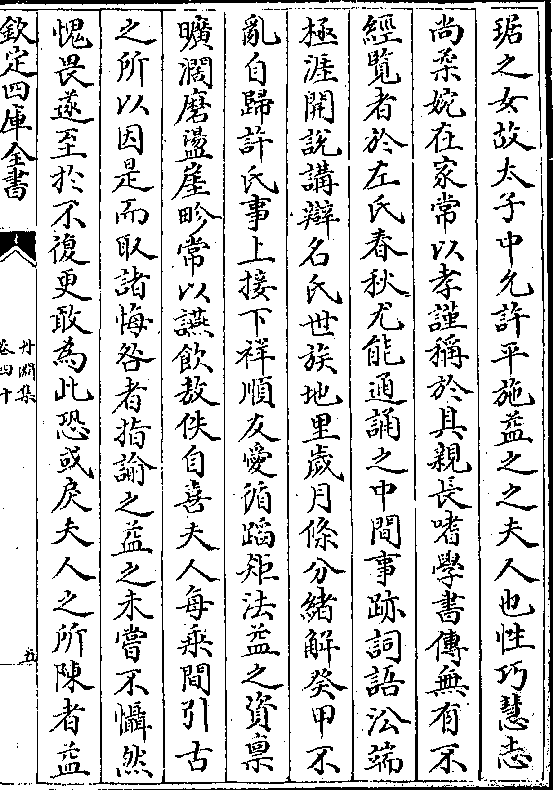 琚之女故太子中允許平施益之之夫人也性巧慧志
尚柔婉在家常以孝謹稱於其親長嗜學書傳無有不
經覽者於左氏春秋尤能通誦之中間事跡詞語㳂端
極涯開說講辯名氏世族地里歲月條分緒解癸甲不
亂自歸許氏事上接下祥順友愛循蹈矩法益之資稟
曠濶磨盪崖畛常以讌飲敖佚自喜夫人每乘間引古
之所以因是而取諸悔咎者指諭之益之未嘗不懾然
愧畏遂至於不復更敢為此恐或戾夫人之所陳者益
欽定四庫全書
丹淵集
卷四十
五